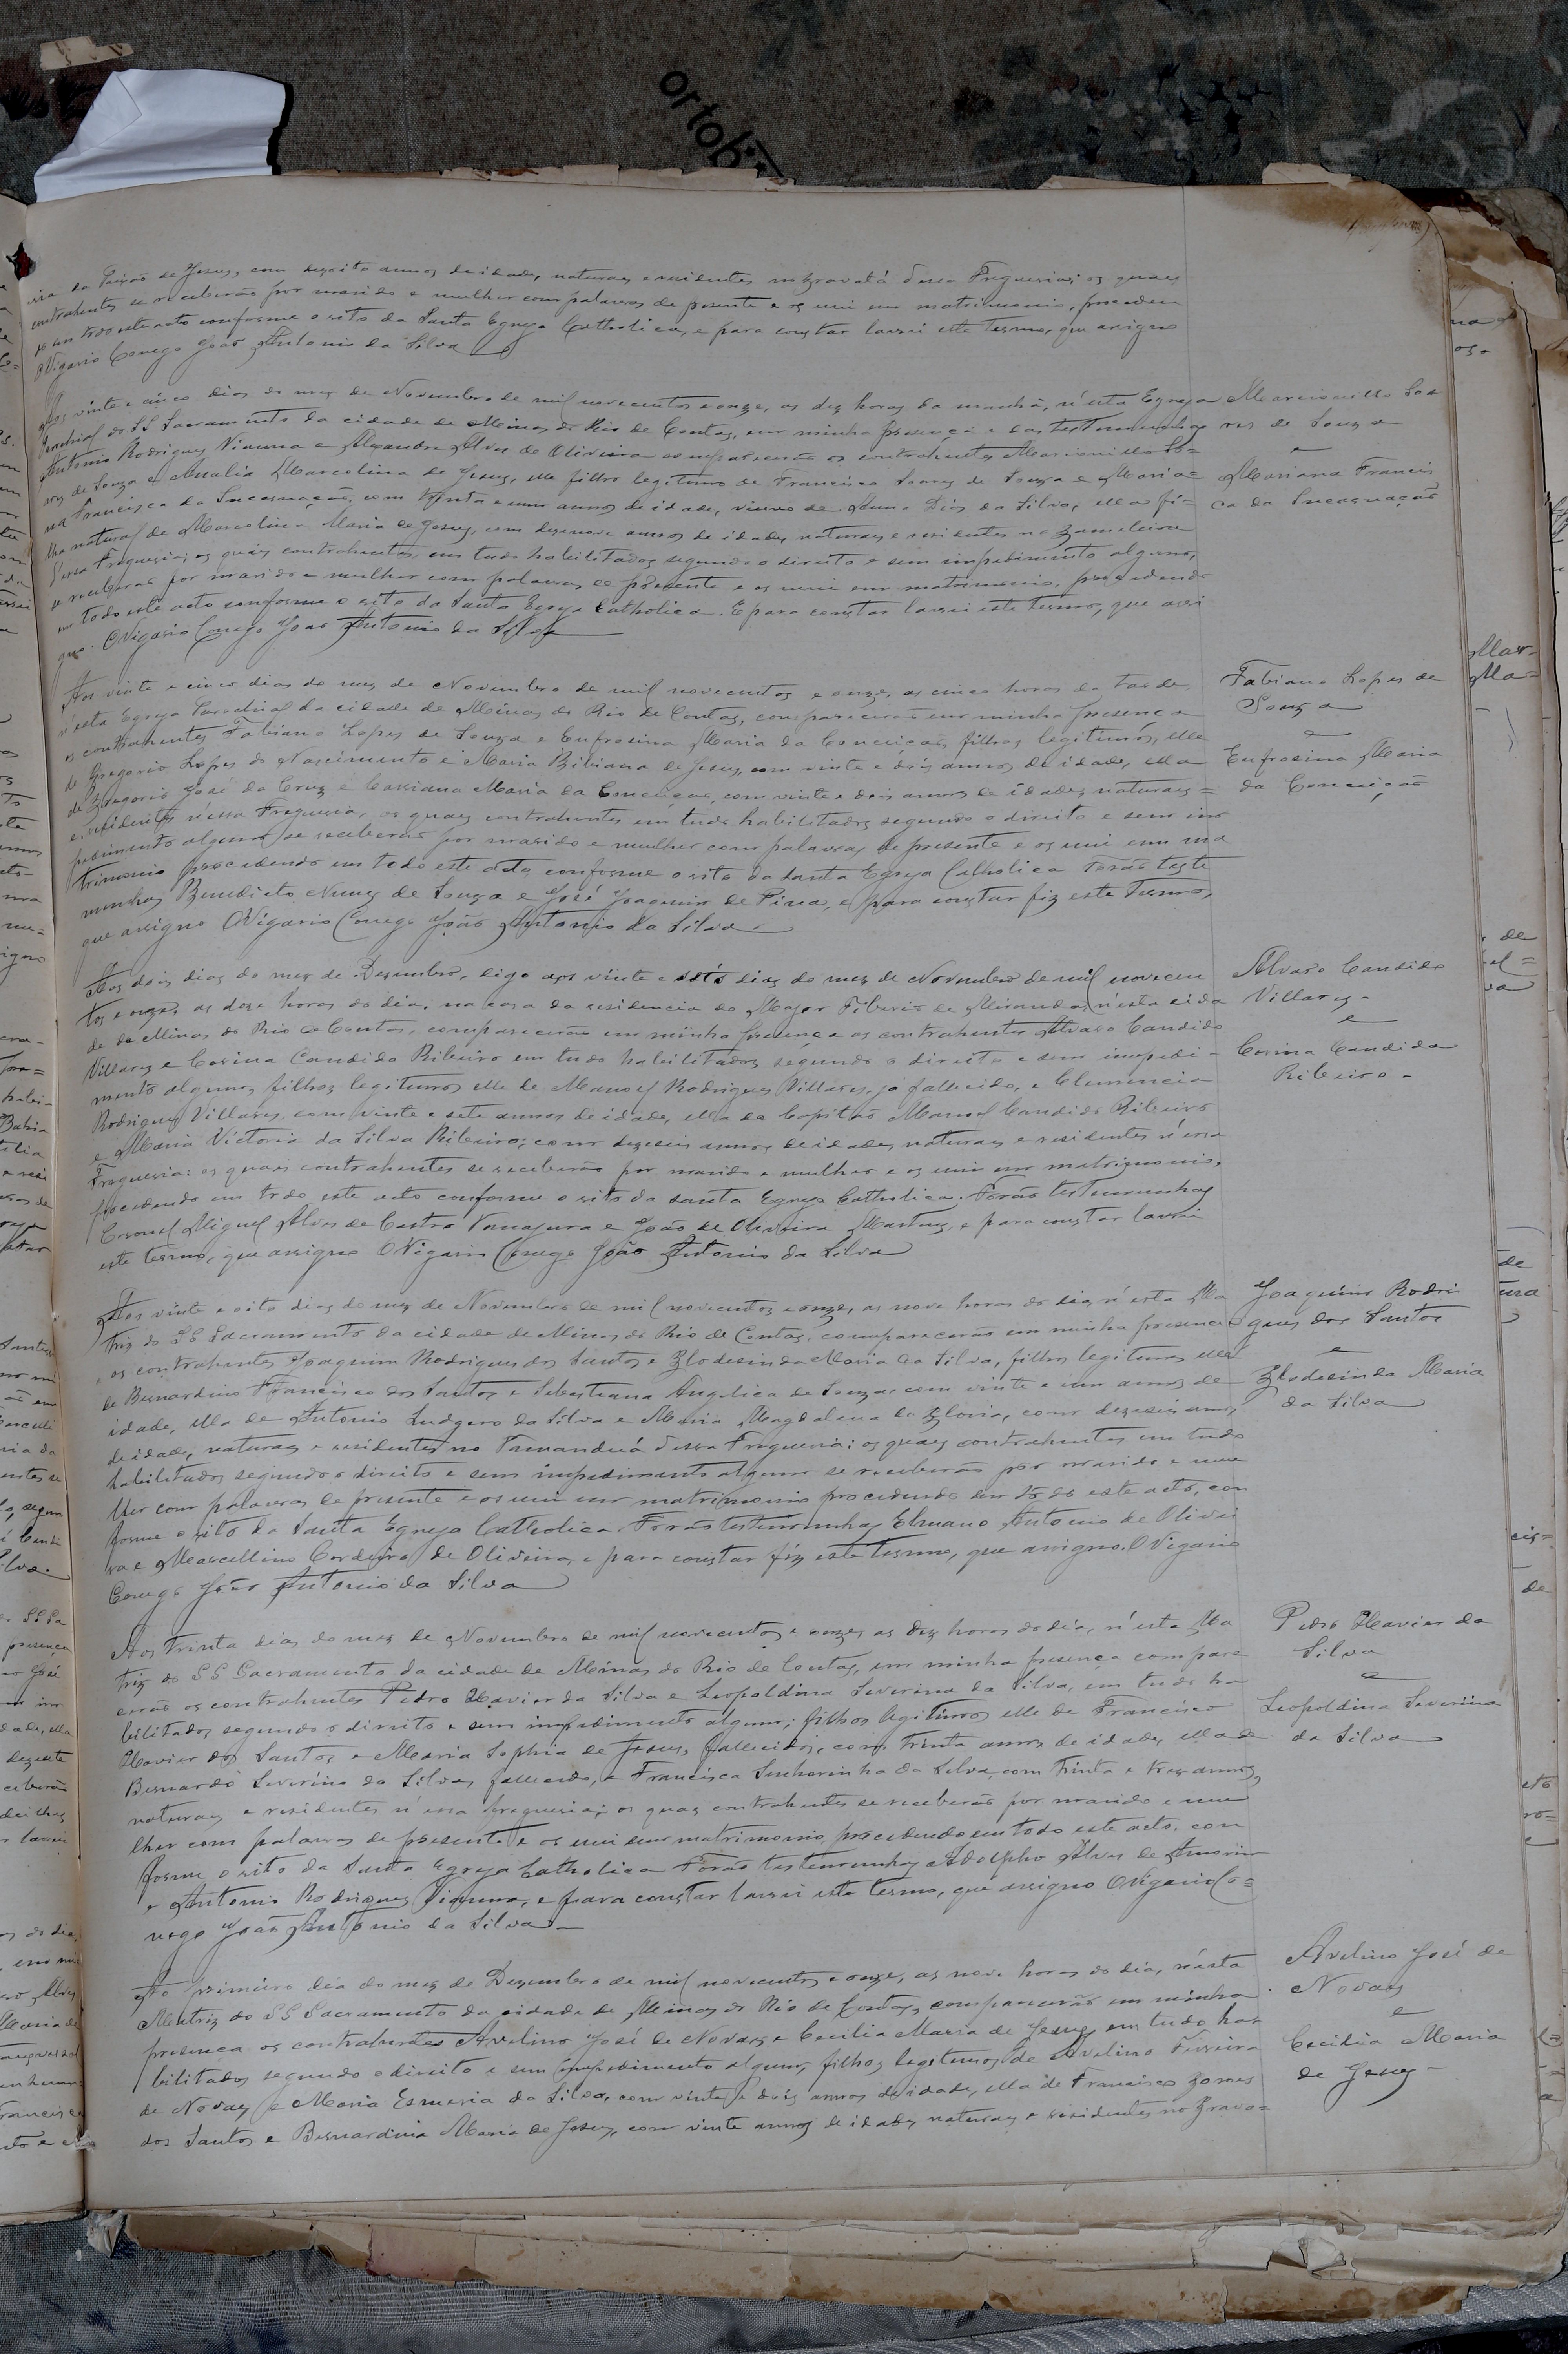 ria da Paixão de Jesus, com dezoito annos de idade, naturaes e residentes no Gravatá dessa Freguesia; os quaes
contrahentes se receberão por marido e mulher com palavras de presente e os uni em matrimonio, proceden
do em todo este acto conforme o rito da Santa Egreja Catholica, e para constar lavrei este termo, que assigno
O Vigario Conego João Antonio da Silva
Aos vinte e cinco dias do mez de Novembro de mil novecentos e onze, as dez horas da manhã, n'esta Egreja
Parochial do SS Sacramento da cidade de Minas do Rio de Contas, em minha presença e das testemunhas
Antonio Rodrigues Vianna e Alexandre Alves de Oliveira comparecerão os contrahentes Marcionillo So-
ares de Souza e Amalia Marcolina de Jesus, elle filho legitimo de Francisco Soares de Souza e Maria=
na Francisca da Encarnação, com trinta e um annos de idade, viuvo de Anna Dias da Silva, ella fi=
lha natural de Marcolina Maria de Jesus, com dezenove annos de idade, naturaes e residentes na Gamelleira
d'essa Freguesia; os quaes contrahentes em tudo habilitados segundo o direito e sem impedimento algum,
se receberão por marido e mulher com palavras de presente e os uni em matrimonio, procedendo
em todo este acto conforme o rito da Santa Egreja Catholica. E para constar lavrei este termo, que assi
gno. O Vigario Conego João Antonio da Silva
Marcionillo Soa
res de Souza
e
Mariana Francis
ca da Encarnação
Aos vinte e cinco dias do mez de Novembro de mil novecentos e onze, as cinco horas da tarde
n'esta Egreja Parochial da cidade de Minas do Rio de Contas, comparecerão em minha presença
os contrahentes Fabiano Lopes de Souza e Eufrosina Maria da Conceição, filhos legitimos, elle
de Gregorio Lopes do Nascimento e Maria Bibiana de Jesus, com vinte e dois annos de idade, ella
de Gregorio José da Cruz e Cassiana Maria da Conceição, com vinte e dois annos de idade, naturaes=
e residentes n'essa Freguesia, os quaes contrahentes em tudo habilitados segundo o direito e sem im
pedimento algum se receberão por marido e mulher com palavras de presente e os uni em ma
trimonio procedendo em todo este acto, conforme o rito da Santa Egreja Catholica Forão teste
munhas Benedicto Nunes de Souza e José Joaquim de Pina, e para constar fiz este termo,
que assigno O Vigario Conego João Antonio da Silva
Fabiano Lopes de
Souza
e
Eufrosina Maria
da Conceição
Aos dois dias do mez de Dezembro, digo aos vinte e seis dias do mez de Novembro de mil novecen
tos e onze, as doze horas do dia, na casa da residencia do Major Tiberio de Miranda, n'esta cida
de de Minas do Rio de Contas, comparecerão em minha presença os contrahentes Alvaro Candido
Villares e Corina Candida Ribeiro em tudo habilitados segundo o direito e sem impedi-
mento algum, filhos legitimos elle de Manoel Rodrigues Villares, já fallecido, e Clemencia
Rodrigues Villares, com vinte e sete annos de idade, ella do Capitão Manoel Candido Ribeiro
e Maria Victoria da Silva Ribeiro; com dezeseis annos de idade, naturaes e residentes n'essa
Freguesia: os quaes contrahentes se receberão por marido e mulher e os uni em matrimonio,
procedendo em todo este acto conforme o rito da Santa Egreja Catholica. Forão testemunhas
Coronel Miguel Alves de Castro Tanajura e João de Oliveira Martins, e para constar lavrei
este termo, que assigno O Vigario Conego João Antonio da Silva
Alvaro Candido
Villares-
e
Corina Candida
Ribeiro-
Aos vinte e oito dias do mez de Novembro de mil novecentos e onze, as nove horas do dia, n'esta Ma
triz do SS Sacramento da cidade de Minas do Rio de Contas, comparecerão em minha presença
os contrahentes Joaquim Rodrigues dos Santos e Glodesinda Maria da Silva, filhos legitimos elle
de Bernardino Francisco dos Santos e Sebastiana Angelica de Souza, com vinte e um annos de
idade, ella de Antonio Ludgero da Silva e Maria Magdalena da Gloria, com dezeseis annos
de idade, naturaes e residentes no Tamanduá dessa Freguesia; os quaes contrahentes em tudo
habilitados segundo o direito e sem impedimento algum se receberão por marido e mu
lher com palavras de presente e os uni em matrimonio procedendo em todo este acto, con
forme o rito da Santa Egreja Catholica. Forão testemunhas Antonio de Olivei
ra e Marcellino Cordeiro de Oliveira, e para constar fiz este termo, que assigno. O Vigario
Conego João Antonio da Silva
Joaquim Rodri
gues dos Santos
e
Glodesinda Maria
da Silva
Aos trinta dias do mez de Novembro de mil novecentos e onze, as dez horas do dia, n'esta Ma
triz do SS Sacramento da cidade de Minas do Rio de Contas, em minha presença compare
cerão os contrahentes Pedro Xavier da Silva e Leopoldina Severina da Silva, em tudo ha
bilitados segundo o direito e sem impedimento algum; filhos legitimos elle de Francisco
Xavier dos Santos e Maria Sophia de Jesus, fallecidos, com trinta annos de idade, ella de
Bernardo Severino da Silva, fallecido, e Francisca Senhorinha da Silva, com trinta e tres annos,
naturaes e residentes n'essa freguesia; os quaes contrahentes se receberão por marido e mu
lher com palavras de presente e os uni em matrimonio, procedendo em todo este acto, con
forme o rito da Santa Egreja Catholica Forão testemunhas Adolpho Alves de Amorim
e Antonio Rodrigues Vianna, e para constar lavrei este termo, que assigno O Vigario Co=
nego João Antonio da Silva-
Pedro Xavier da
Silva
e
Leopoldina Severina
da Silva
Ao primeiro dia do mez de Dezembro de mil novecentos e onze, as nove horas do dia, n'esta
Matriz do SS Sacramento da cidade de Minas do Rio de Contas, comparecerão em minha
presença os contrahentes Avelino José de Novaes e Cecilia Maria de Jesus, em tudo ha
bilitados segundo o direito e sem impedimento algum, filhos legitimos de Avelino Ferreira
de Novaes e Maria Esmeria da Silva, com vinte e dois annos de idade, ella de Francisco Gomes
dos Santos e Bernardina Maria de Jesus, com vinte annos de idade, naturaes e residentes no Grava=
Avelino José de
Novaes
e
Cecilia Maria
de Jesus-